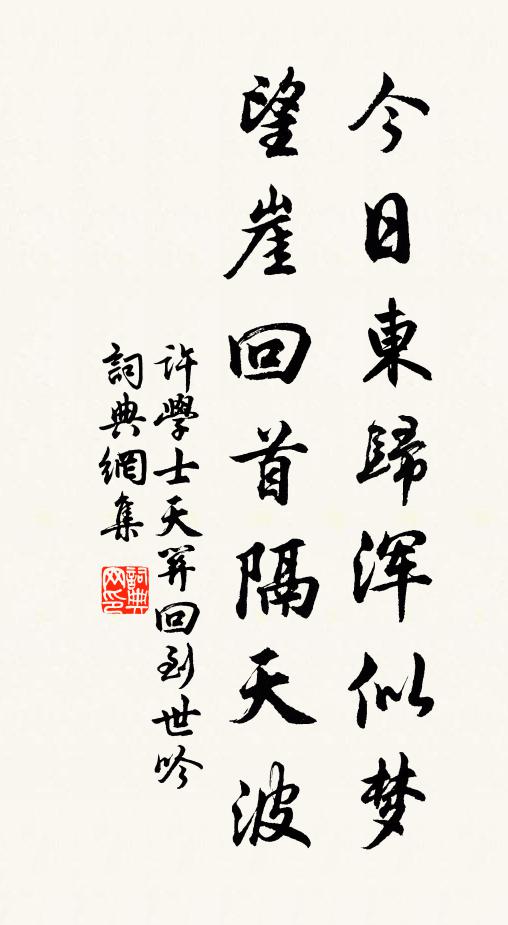 今日東歸浑似梦
望崖回首隔天波
許學士天回到世吟
詞典網集
詞典网印